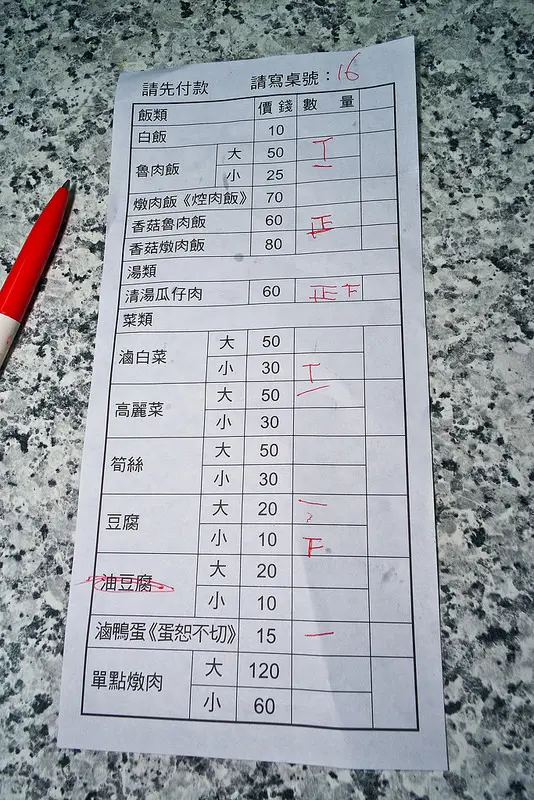 請先付款 請寫桌號：16
飯類 價錢 數量
白飯 10
魯肉飯 大 50 T
小 25 一
燉肉飯《焢肉飯》 70
香菇魯肉飯 60 正
香菇燉肉飯 80
湯類
清湯瓜仔肉 60 正下
菜類
滷白菜 大 50
小 30 T
高麗菜 大 50 一
小 30
筍絲 大 50
小 30
豆腐 大 20
小 10 下
油豆腐 大 20
小 10
滷鴨蛋《蛋恕不切》 15 一
單點燉肉 大 120
小 60